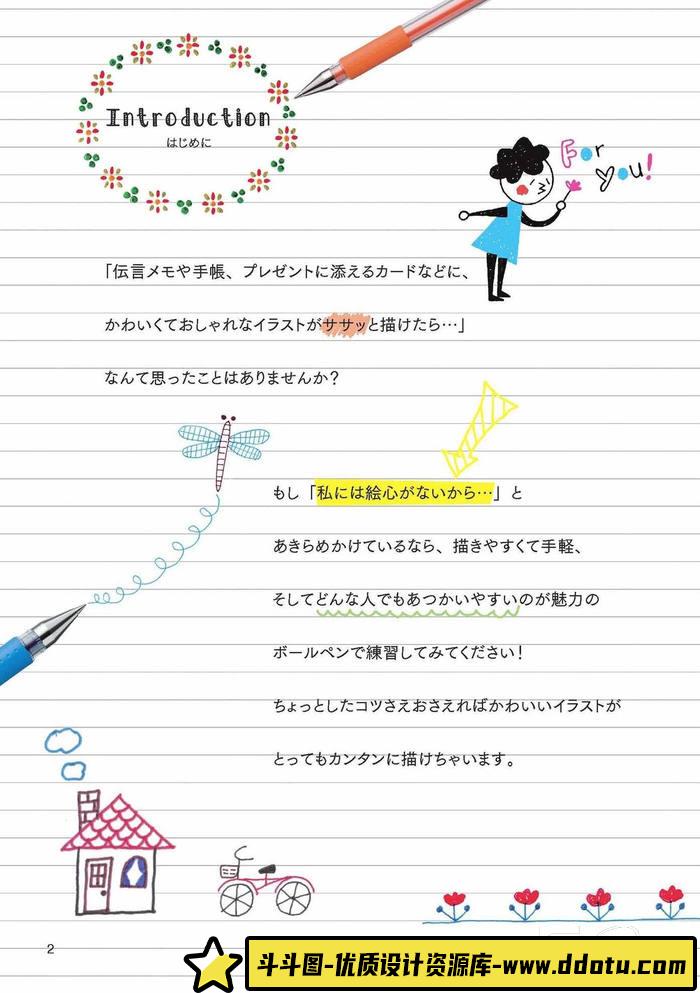 Introduction
はじめに
For
you!
「伝言メモや手帳、プレゼントに添えるカードなどに、
かわいくておしゃれなイラストがササッと描けたら…」
なんて思ったことはありませんか？
もし「私には絵心がないから…」と
あきらめかけているなら、描きやすくて手軽、
そしてどんな人でもあつかいやすいのが魅力の
ボールペンで練習してみてください！
ちょっとしたコツさえおさえればかわいいイラストが
とってもカンタンに描けちゃいます。
2
斗斗图-优质设计资源库-www.ddotu.com